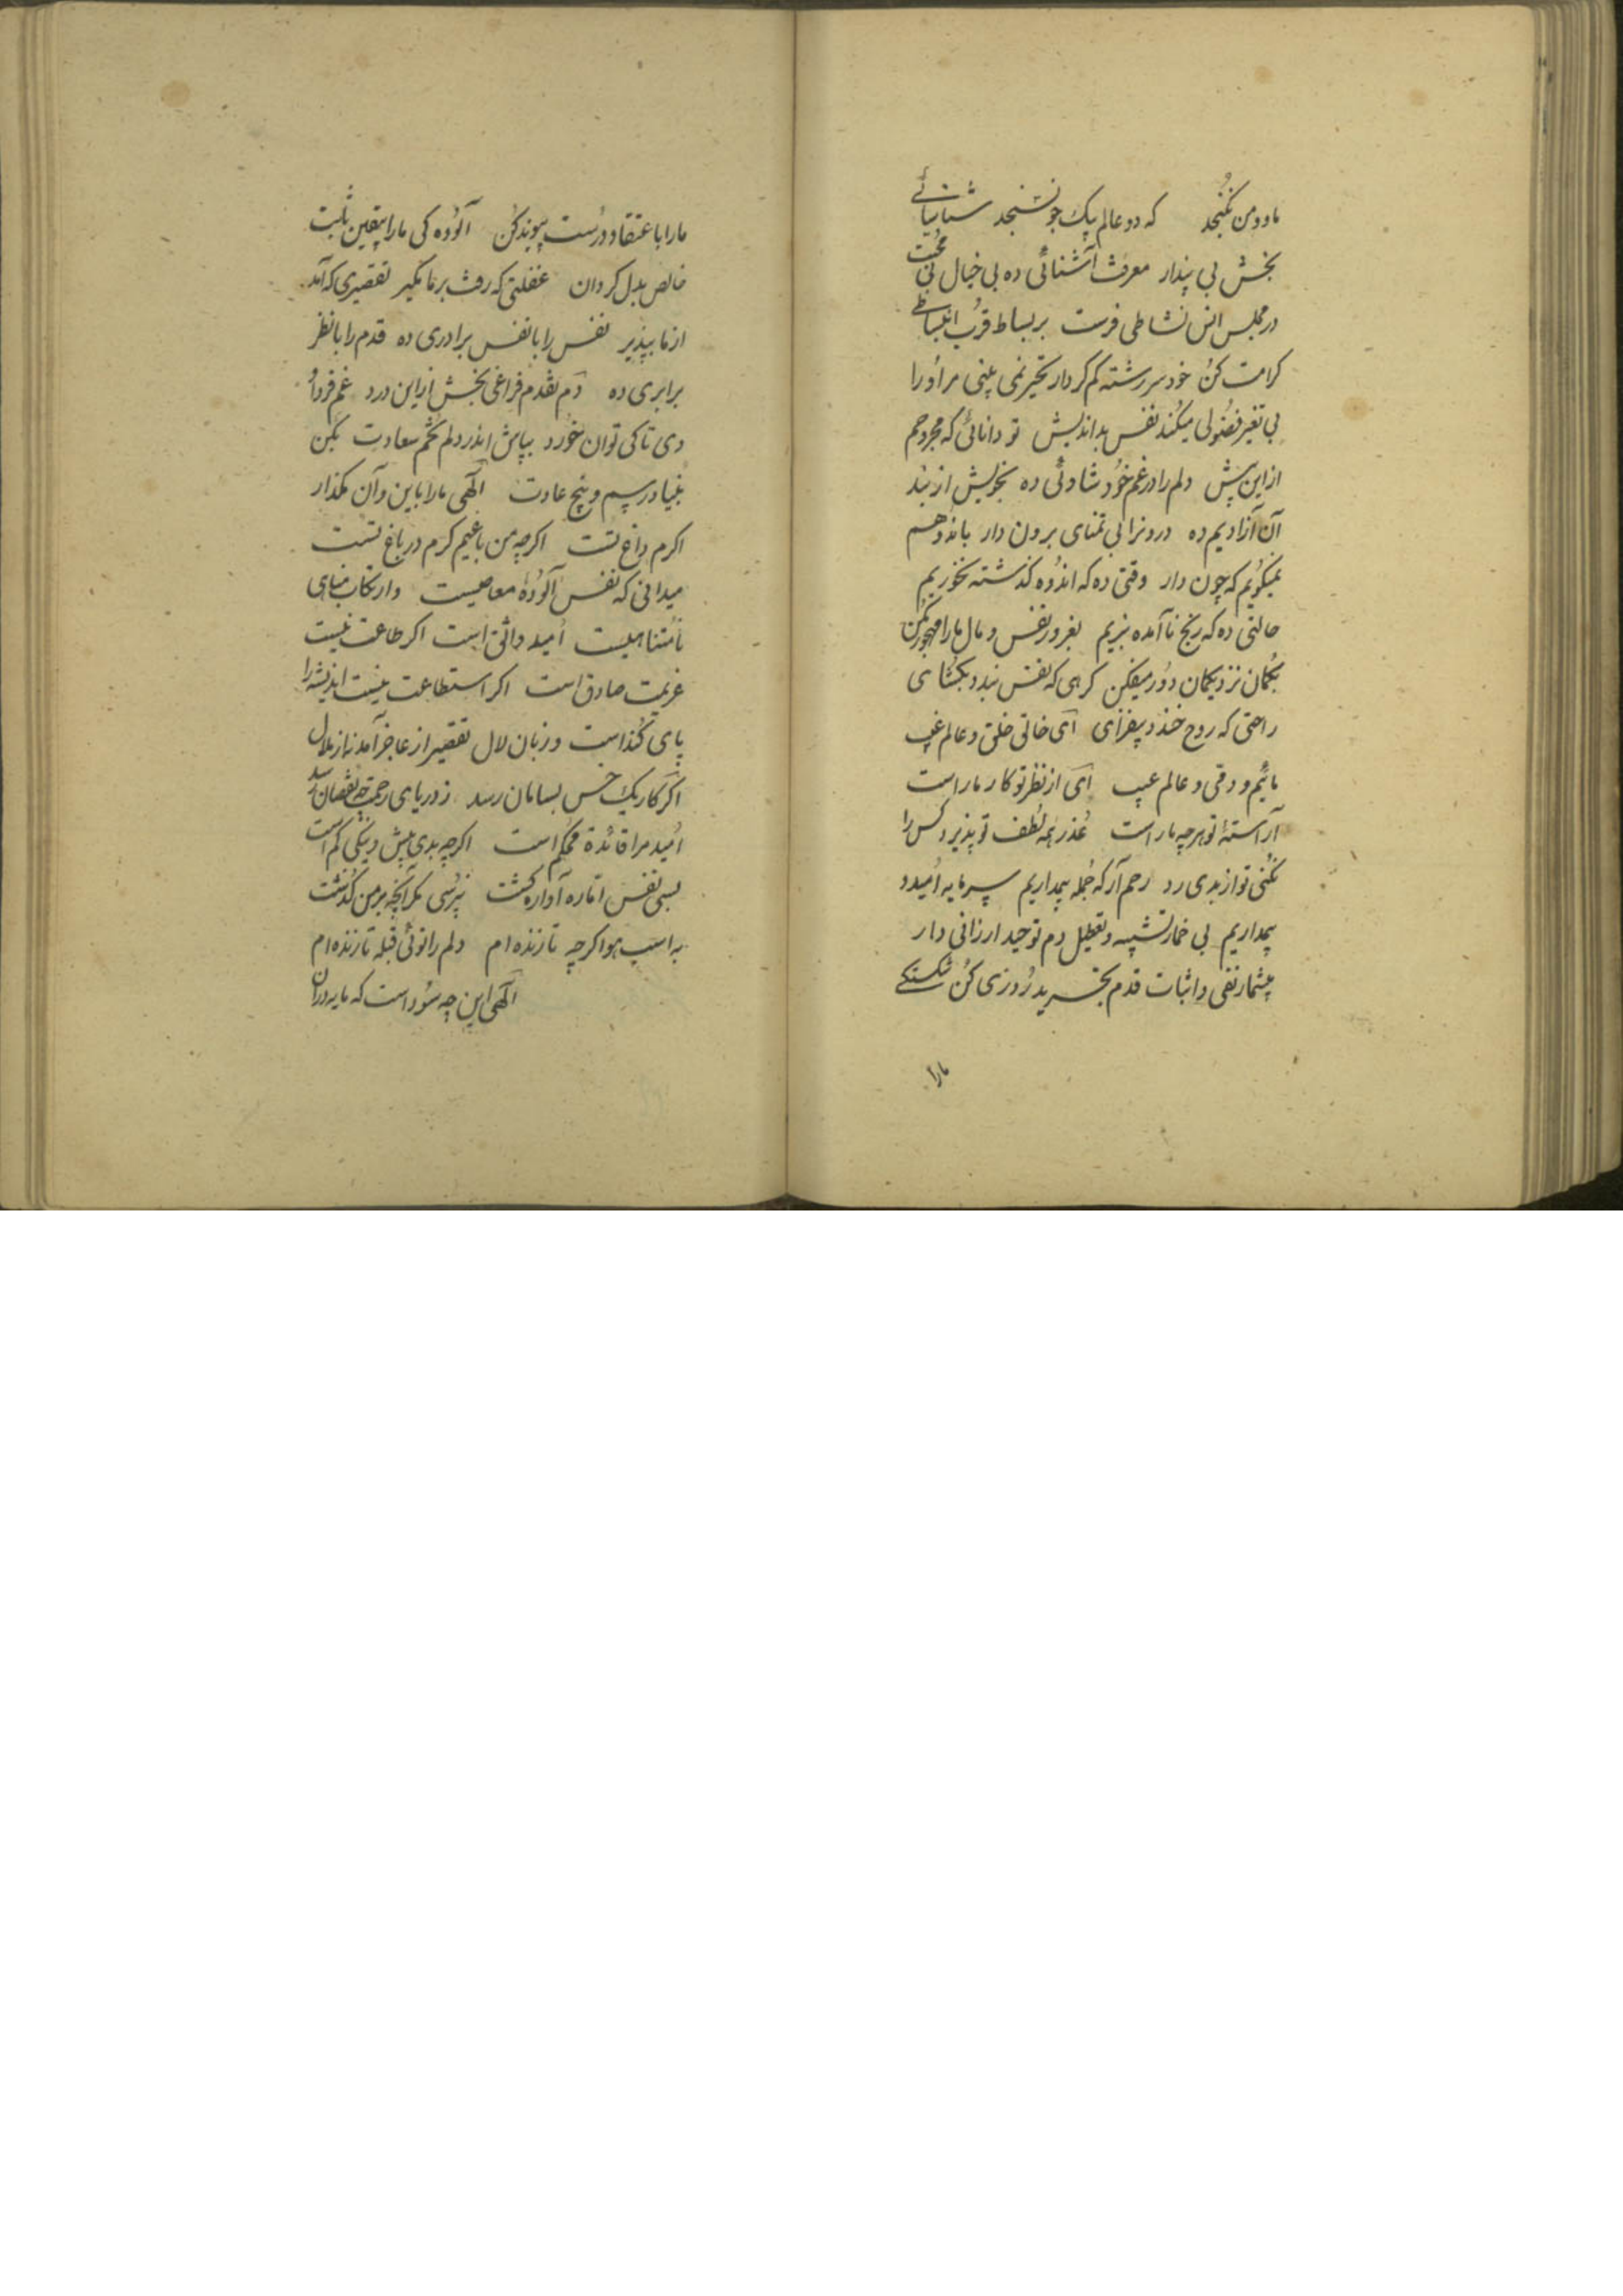 ما و من نگنجد که دو عالم بیک جو نسنجد شناسائی
بخش بی پندار معرفت آشنائی ده بی خیال محبت
در مجلس انس نشاطی فرست بر بساط قرب انبساطی
کرامت کن خود سررشته کم کردار تحیر نمی بینی مر او را
بی تغیر فضولی میکند نفس بد اندیش تو دانائی که مجروحم
از این پیش دلم را در غم خود شادئی ده بخویش از بند
آن آزادیم ده درونرا بی تمنای برون دار باندوهم
نمیگویم که چون دار وقتی ده که اندوه گذشته نخوریم
حالتی ده که رنج ناآمده نبریم بغرور نفس و مال ما را مهجور مکن
بگمان نزدیکمان دور میفکن گرهی که نفس بندد بگشای
راحتی که روح خندد بیفزای ای خالق خلق و عالم غیب
مائیم و دقی و عالم عیب ای از نظر تو کار ما راست
آراسته تو هر چه ما راست عذر همه لطف تو پذیرد کس را
نکنی تو از بدی رد رحم آر که جمله بیمداریم سرمایه امید و
بیمداریم بی خمار تشبیه و تعطیل دم توحید ارزانی دار
بیشمار نفی و اثبات قدم تجرید روزی کن شکستگی
ما را
ما را با عتقاد درست پیوند کن آلوده کی ما را بیقین
خالص بدل گردان غفلتی که رفت بر ما مگیر تقصیری که آمد
از ما بپذیر نفس را با نفس برادری ده قدم را با نظر
برابری ده دم نقدم فراغی بخش از این درد غم فردا و
دی تا کی توان خورد بپاش اندر دلم تخم سعادت بکن
بنیاد رسم و بیخ عادت الهی ما را باین و آن مگذار
اکرم داغ تست اکرچه من باغیم کرم در باغ تست
میدانی که نفس آلوده معاصیست و ارتکاب مناهی
نامتناهیست امید واثق است اکر طاعت نیست
عزیمت صادق است اکر استطاعت نیست اندیشه را
پای کند است و زبان لال تقصیر از عاجز آمد نه از ملال
اکر کار یک خس بسامان رسد ز دریای رحمت چه نقصان رسد
امید مرا قائده محکم است اکرچه بدی بیش و نیکی کم است
بسی نفس اماره آواره کشت نپرسی مکر آنچه بر من گذشت
به اسب هوا کرچه تازنده ام دلم را توئی قبله تا زنده ام
الهی این چه سود است که مایه در آن